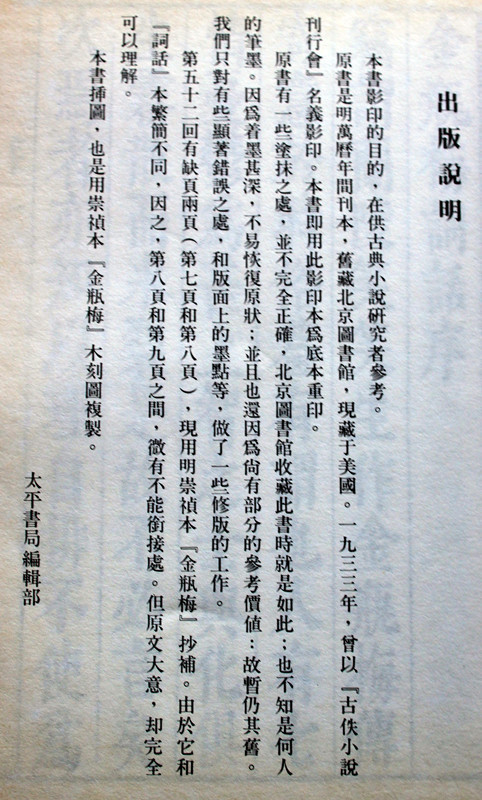 出版說明
本書影印的目的，在供古典小說研究者參考。
原書是明萬曆年間刊本，舊藏北京圖書館，現藏于美國。一九三三年，曾以『古佚小說
刊行會』名義影印。本書即用此影印本爲底本重印。
原書有一些塗抹之處，並不完全正確，北京圖書館收藏此書時就是如此；也不知是何人
的筆墨。因爲着墨甚深，不易恢復原狀；並且也還因爲尚有部分的參考價値：故暫仍其舊。
我們只對有些顯著錯誤之處，和版面上的墨點等，做了一些修版的工作。
第五十二回有缺頁兩頁（第七頁和第八頁），現用明崇禎本『金瓶梅』抄補。由於它和
『詞話』本繁簡不同，因之，第八頁和第九頁之間，微有不能銜接處。但原文大意，却完全
可以理解。
本書揷圖，也是用崇禎本『金瓶梅』木刻圖複製。
太平書局編輯部